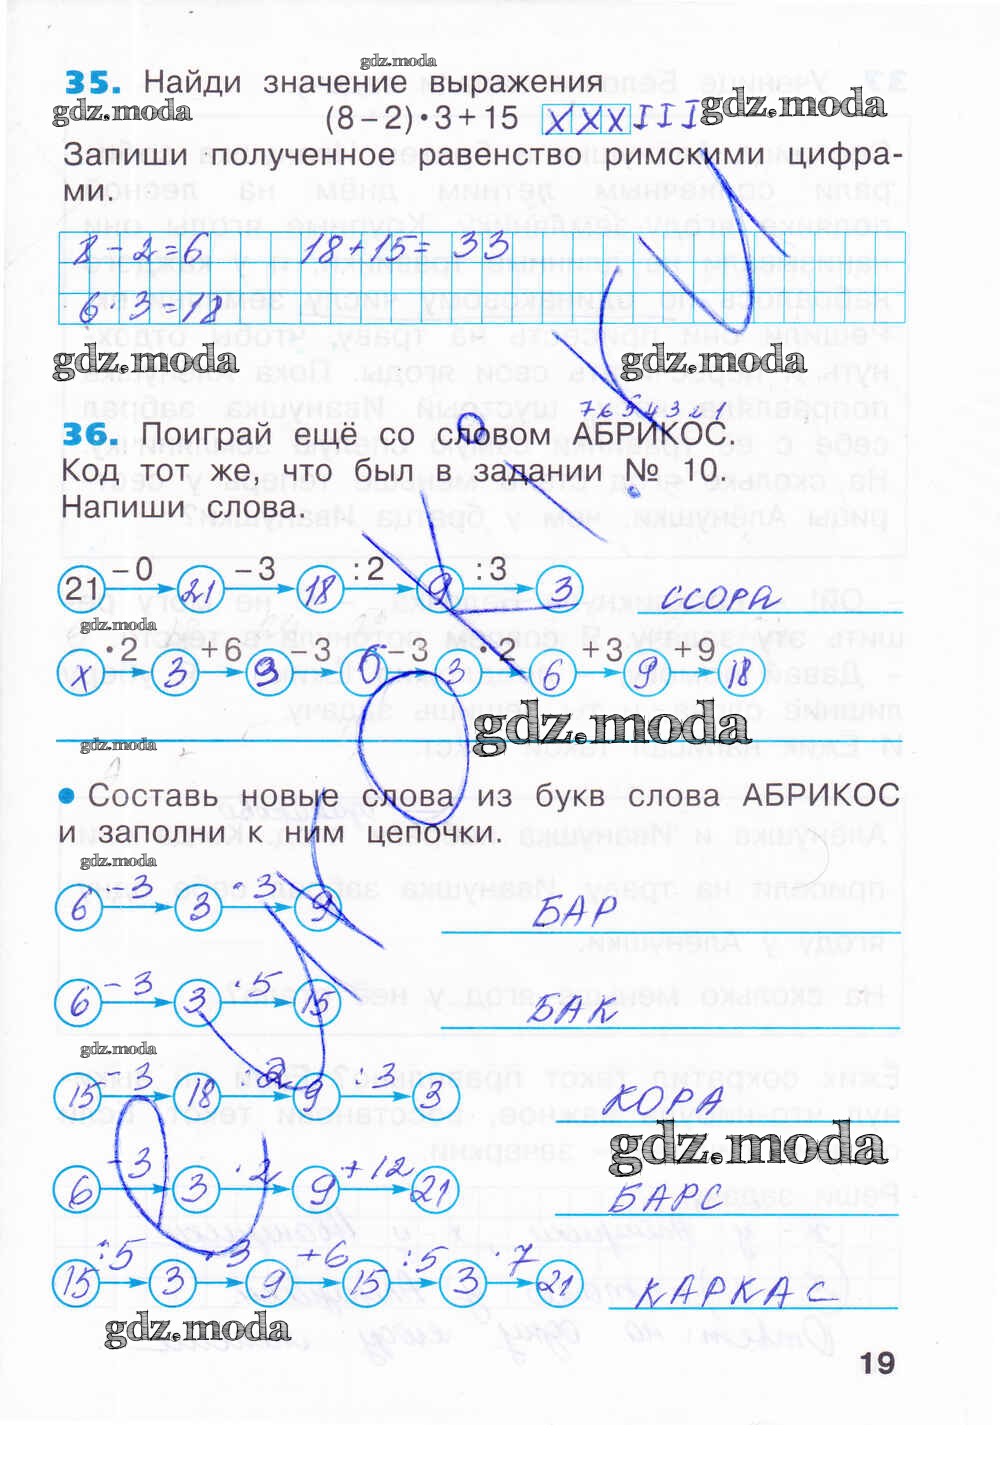 gdz.moda
35. Найди значение выражения
gdz.moda
(8 – 2) • 3 + 15 XXXIII
gdz.moda
Запиши полученное равенство римскими цифра-
ми.
8 – 2 = 6 18 + 15 = 33
6 · 3 = 18
gdz.moda gdz.moda
36. Поиграй ещё со словом АБРИКОС.
Код тот же, что был в задании № 10.
Напиши слова.
– 0 – 3 : 2 : 3
21 21 18 9 3 ССОРА
gdz.moda
• 2 + 6 – 3 – 3 • 2 + 3 + 9
х 3 9 6 3 6 9 18
gdz.moda
gdz.moda
• Составь новые слова из букв слова АБРИКОС
и заполни к ним цепочки.
gdz.moda
– 3 · 3
6 3 9 БАР
– 3 · 5
6 3 15 БАК
gdz.moda
– 3 : 2 : 3
15 18 9 3 КОРА
gdz.moda
– 3 · 2 + 12
6 3 9 21 БАРС
: 5 · 3 + 6 : 5 · 7
15 3 9 15 3 21 КАРКАС
gdz.moda
19